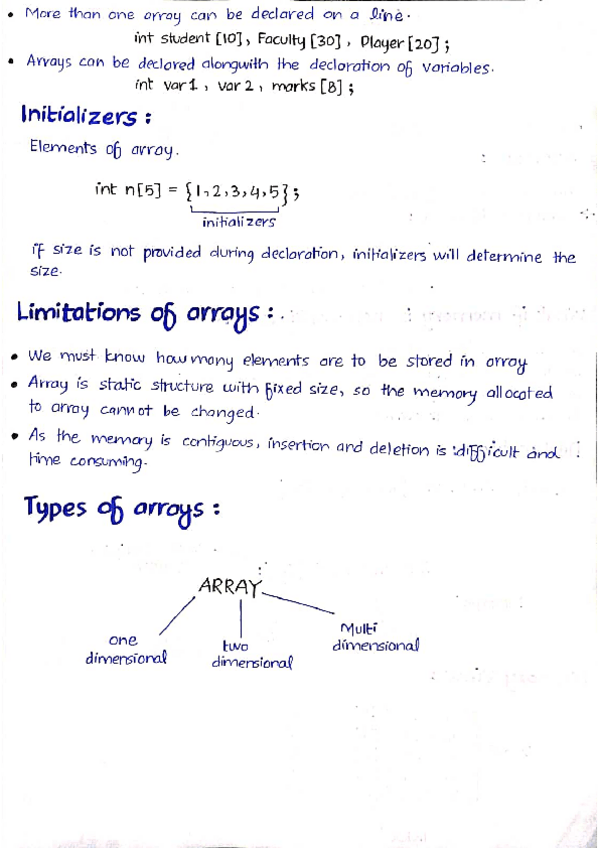 • More than one array can be declared on a line.
int student [10], Faculty [30], Player [20];
• Arrays can be declared alongwith the declaration of variables.
int var1, var2, marks [8];
Initializers :
Elements of array.
int n[5] = {1,2,3,4,5};
initializers
if size is not provided during declaration, initializers will determine the
size.
Limitations of arrays :
• We must know how many elements are to be stored in array
• Array is static structure with fixed size, so the memory allocated
to array cannot be changed.
• As the memory is contiguous, insertion and deletion is difficult and
time consuming.
Types of arrays :
ARRAY
one
dimensional
two
dimensional
Multi
dimensional